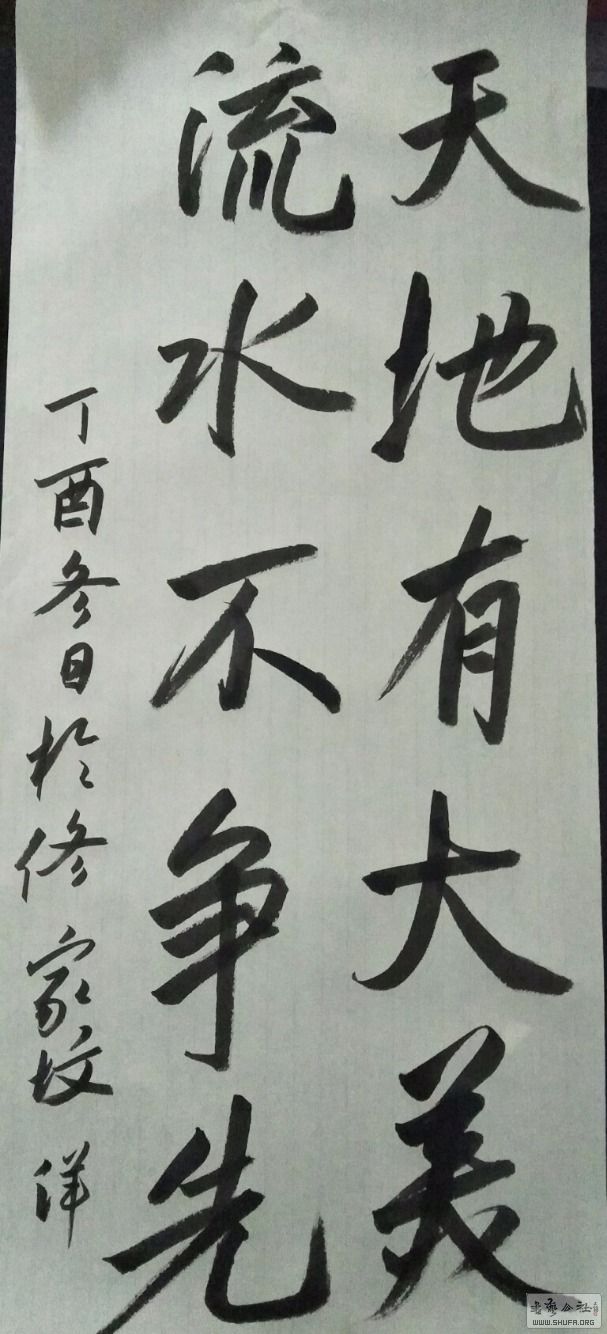 天地有大美
流水不争先
丁酉冬日於修家坟洋
書艺公社
WWW.SHUFA.ORG